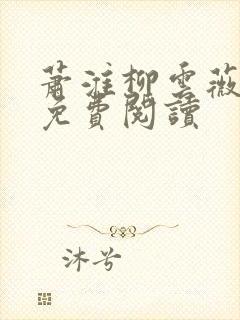 蕭淮柳雲薇
免費閱讀
沐兮